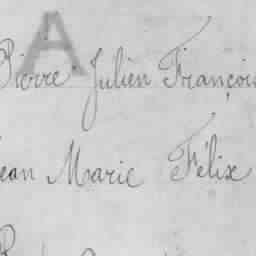 A
Pierre Julien François
Jean Marie Félix